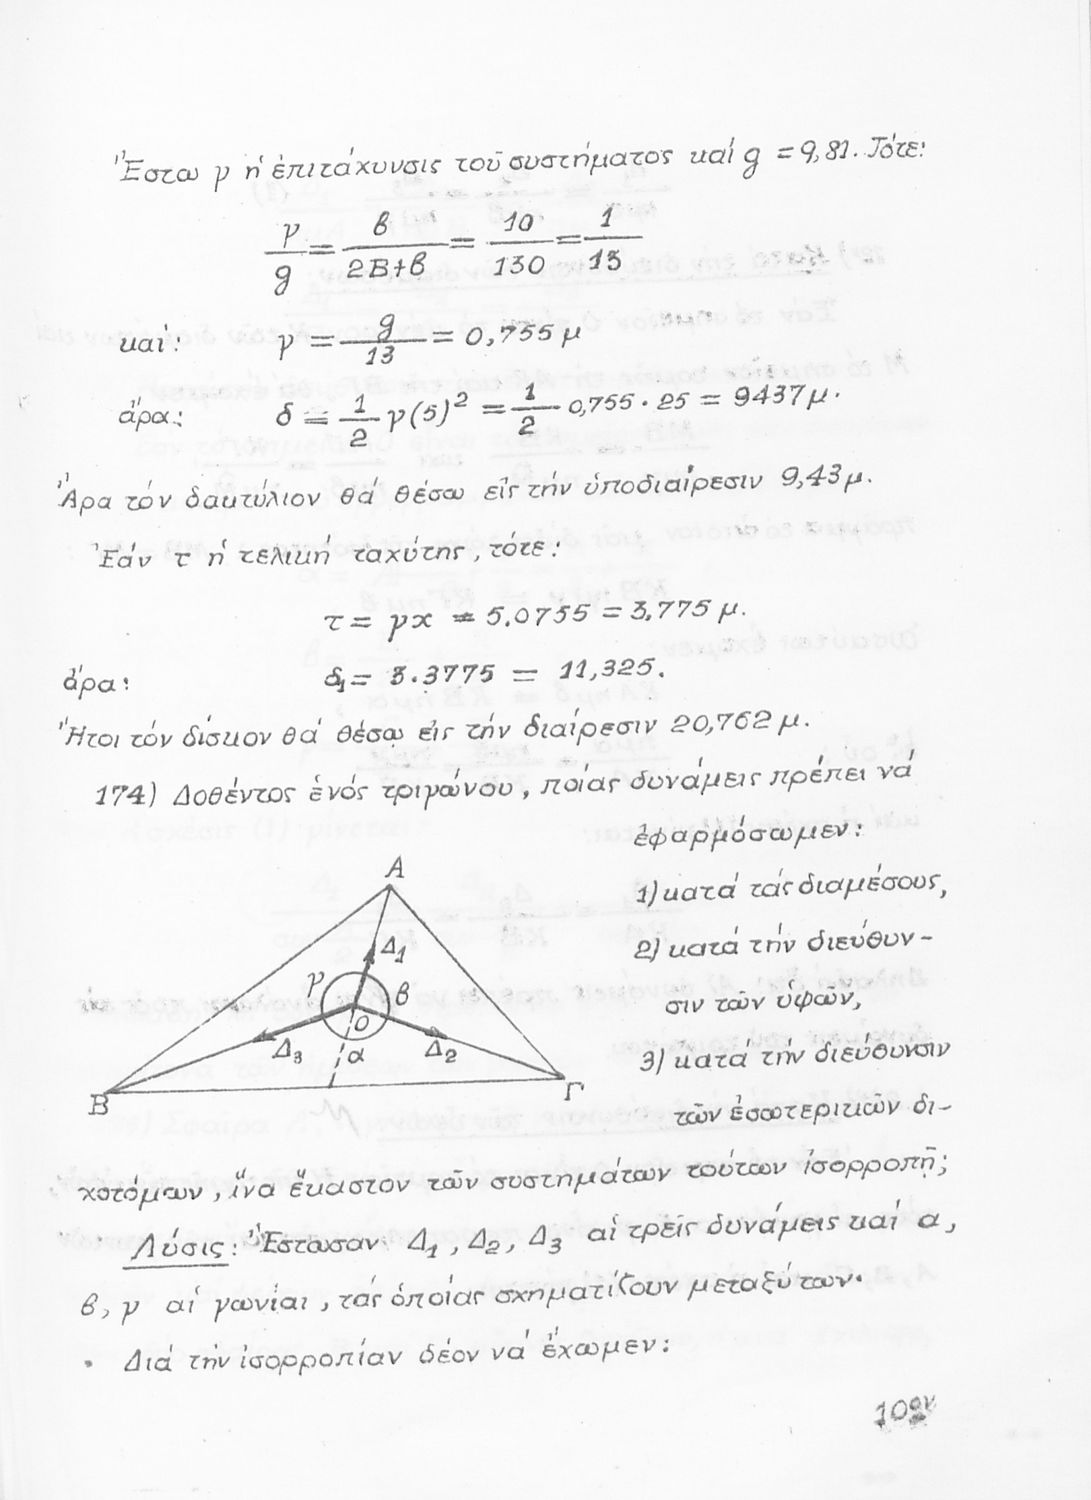 Ἔστω γ ἡ ἐπιτάχυνσις τοῦ συστήματος καί g = 9,81. Τότε:
γ/g = β/2Β+β = 10/130 = 1/13
καί: γ = g/13 = 0,755 μ
ἄρα: δ = 1/2 γ(5)² = 1/2 0,755 · 25 = 9437 μ.
Ἄρα τόν δακτύλιον θά θέσω εἰς τήν ὑποδιαίρεσιν 9,43 μ.
Ἐάν τ ἡ τελική ταχύτης, τότε:
τ = γx = 5.0755 = 3,775 μ.
ἄρα: δ₁ = 3.3775 = 11,325.
Ἤτοι τόν δίσκον θά θέσω εἰς τήν διαίρεσιν 20,762 μ.
174) Δοθέντος ἑνός τριγώνου, ποίας δυνάμεις πρέπει νά
ἐφαρμόσωμεν:
1) κατά τάς διαμέσους,
2) κατά τήν διεύθυν-
σιν τῶν ὑψῶν,
3) κατά τήν διεύθυνσιν
τῶν ἐσωτερικῶν δι-
χοτόμων, ἵνα ἕκαστον τῶν συστημάτων τούτων ἰσορροπῇ;
Α
Δ₁
γ
β
Ο
Δ₃
α
Δ₂
Β
Γ
Λύσις: Ἔστωσαν Δ₁, Δ₂, Δ₃ αἱ τρεῖς δυνάμεις καί α,
β, γ αἱ γωνίαι, τάς ὁποίας σχηματίζουν μεταξύ των.
Διά τήν ἰσορροπίαν δέον νά ἔχωμεν:
10ον